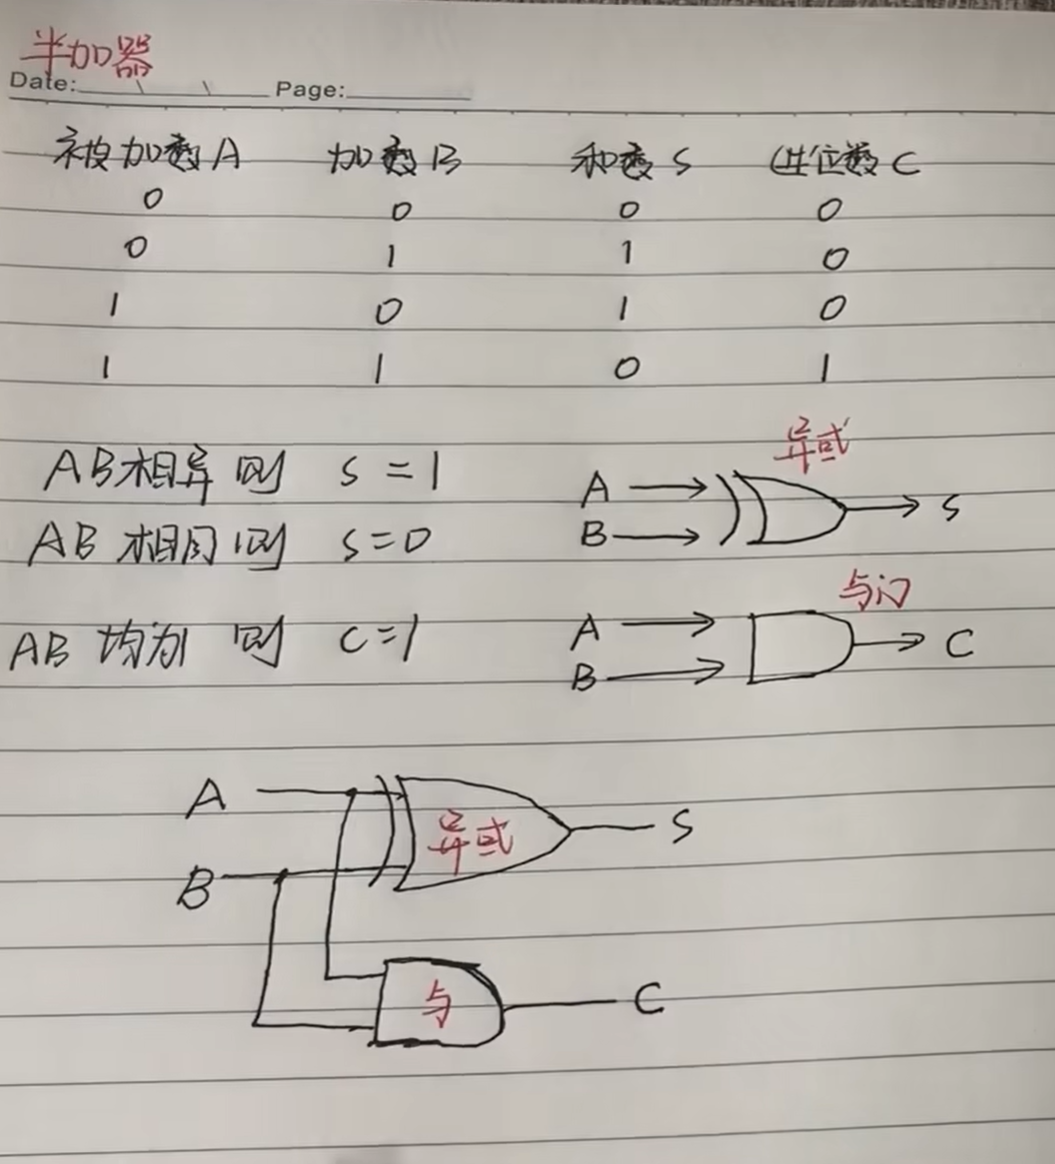 半加器
Date: \ \ Page:
被加数A 加数B 和数S 进位数C
0 0 0 0
0 1 1 0
1 0 1 0
1 1 0 1
AB相异则 S=1
AB相同则 S=0
AB均为1 则 C=1
异或
A
B
S
与门
A
B
C
A
B
异或
S
与
C